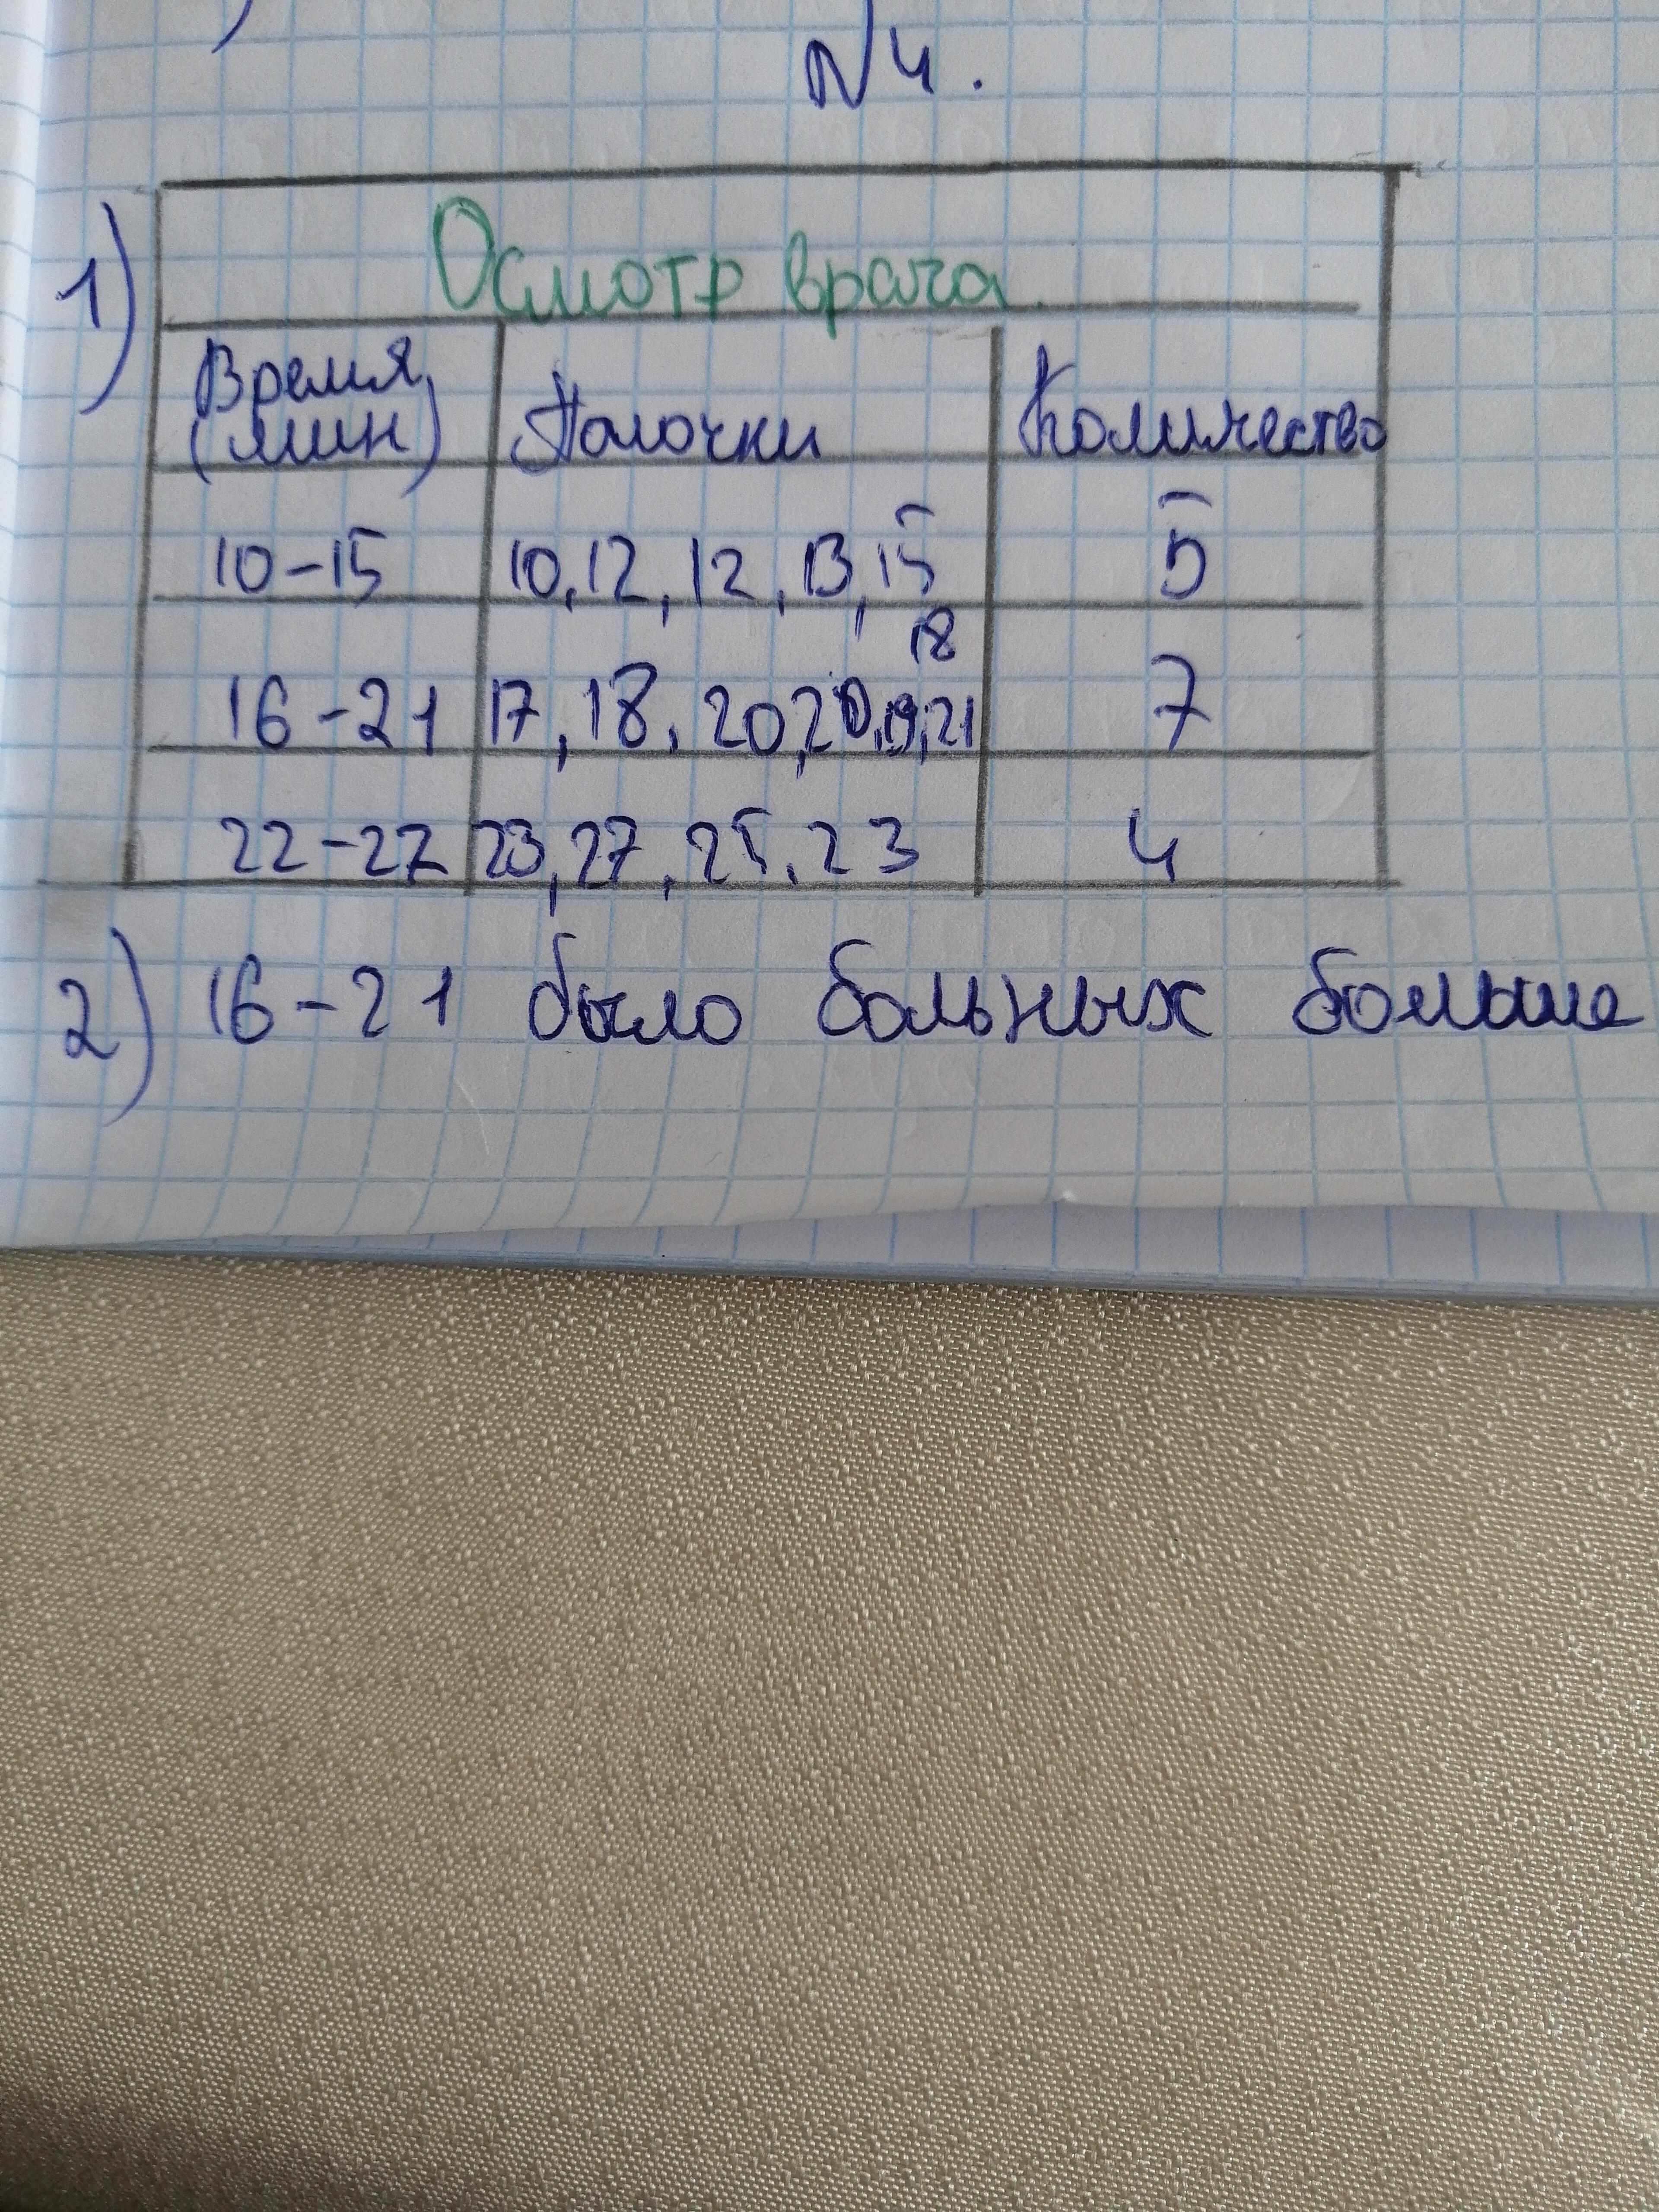 №4.
1)
Осмотр врача.
Время (мин) Палочки Количество
10-15 10,12,12,13,15 5
18
16-21 17,18,20,20,19,21 7
22-27 23,27,25,23 4
2) 16-21 было больных больше